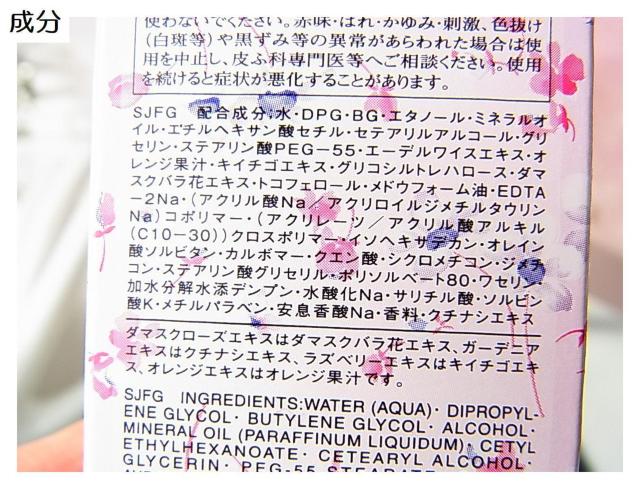 成分
使わないでください。赤味・はれ・かゆみ・刺激、色抜け
(白斑等)や黒ずみ等の異常があらわれた場合は使
用を中止し、皮ふ科専門医等へご相談ください。使用
を続けると症状が悪化することがあります。
SJFG 配合成分:水・DPG・BG・エタノール・ミネラルオ
イル・エチルヘキサン酸セチル・セテアリルアルコール・グリ
セリン・ステアリン酸PEG-55・エーデルワイスエキス・オ
レンジ果汁・キイチゴエキス・グリコシルトレハロース・ダマ
スクバラ花エキス・トコフェロール・メドウフォーム油・EDTA
-2Na・(アクリル酸Na/アクリロイルジメチルタウリン
Na)コポリマー・(アクリレーツ/アクリル酸アルキル
(C10-30))クロスポリマー・イソヘキサデカン・オレイン
酸ソルビタン・カルボマー・クエン酸・シクロメチコン・ジメチ
コン・ステアリン酸グリセリル・ポリソルベート80・ワセリン・
加水分解水添デンプン・水酸化Na・サリチル酸・ソルビン
酸K・メチルパラベン・安息香酸Na・香料・クチナシエキス
ダマスクローズエキスはダマスクバラ花エキス、ガーデニア
エキスはクチナシエキス、ラズベリーエキスはキイチゴエキ
ス、オレンジエキスはオレンジ果汁です。
SJFG INGREDIENTS:WATER (AQUA)・DIPROPYL-
ENE GLYCOL・BUTYLENE GLYCOL・ALCOHOL・
MINERAL OIL (PARAFFINUM LIQUIDUM)・CETYL
ETHYLHEXANOATE・CETEARYL ALCOHOL・
GLYCERIN・PEG-55 STEARATE